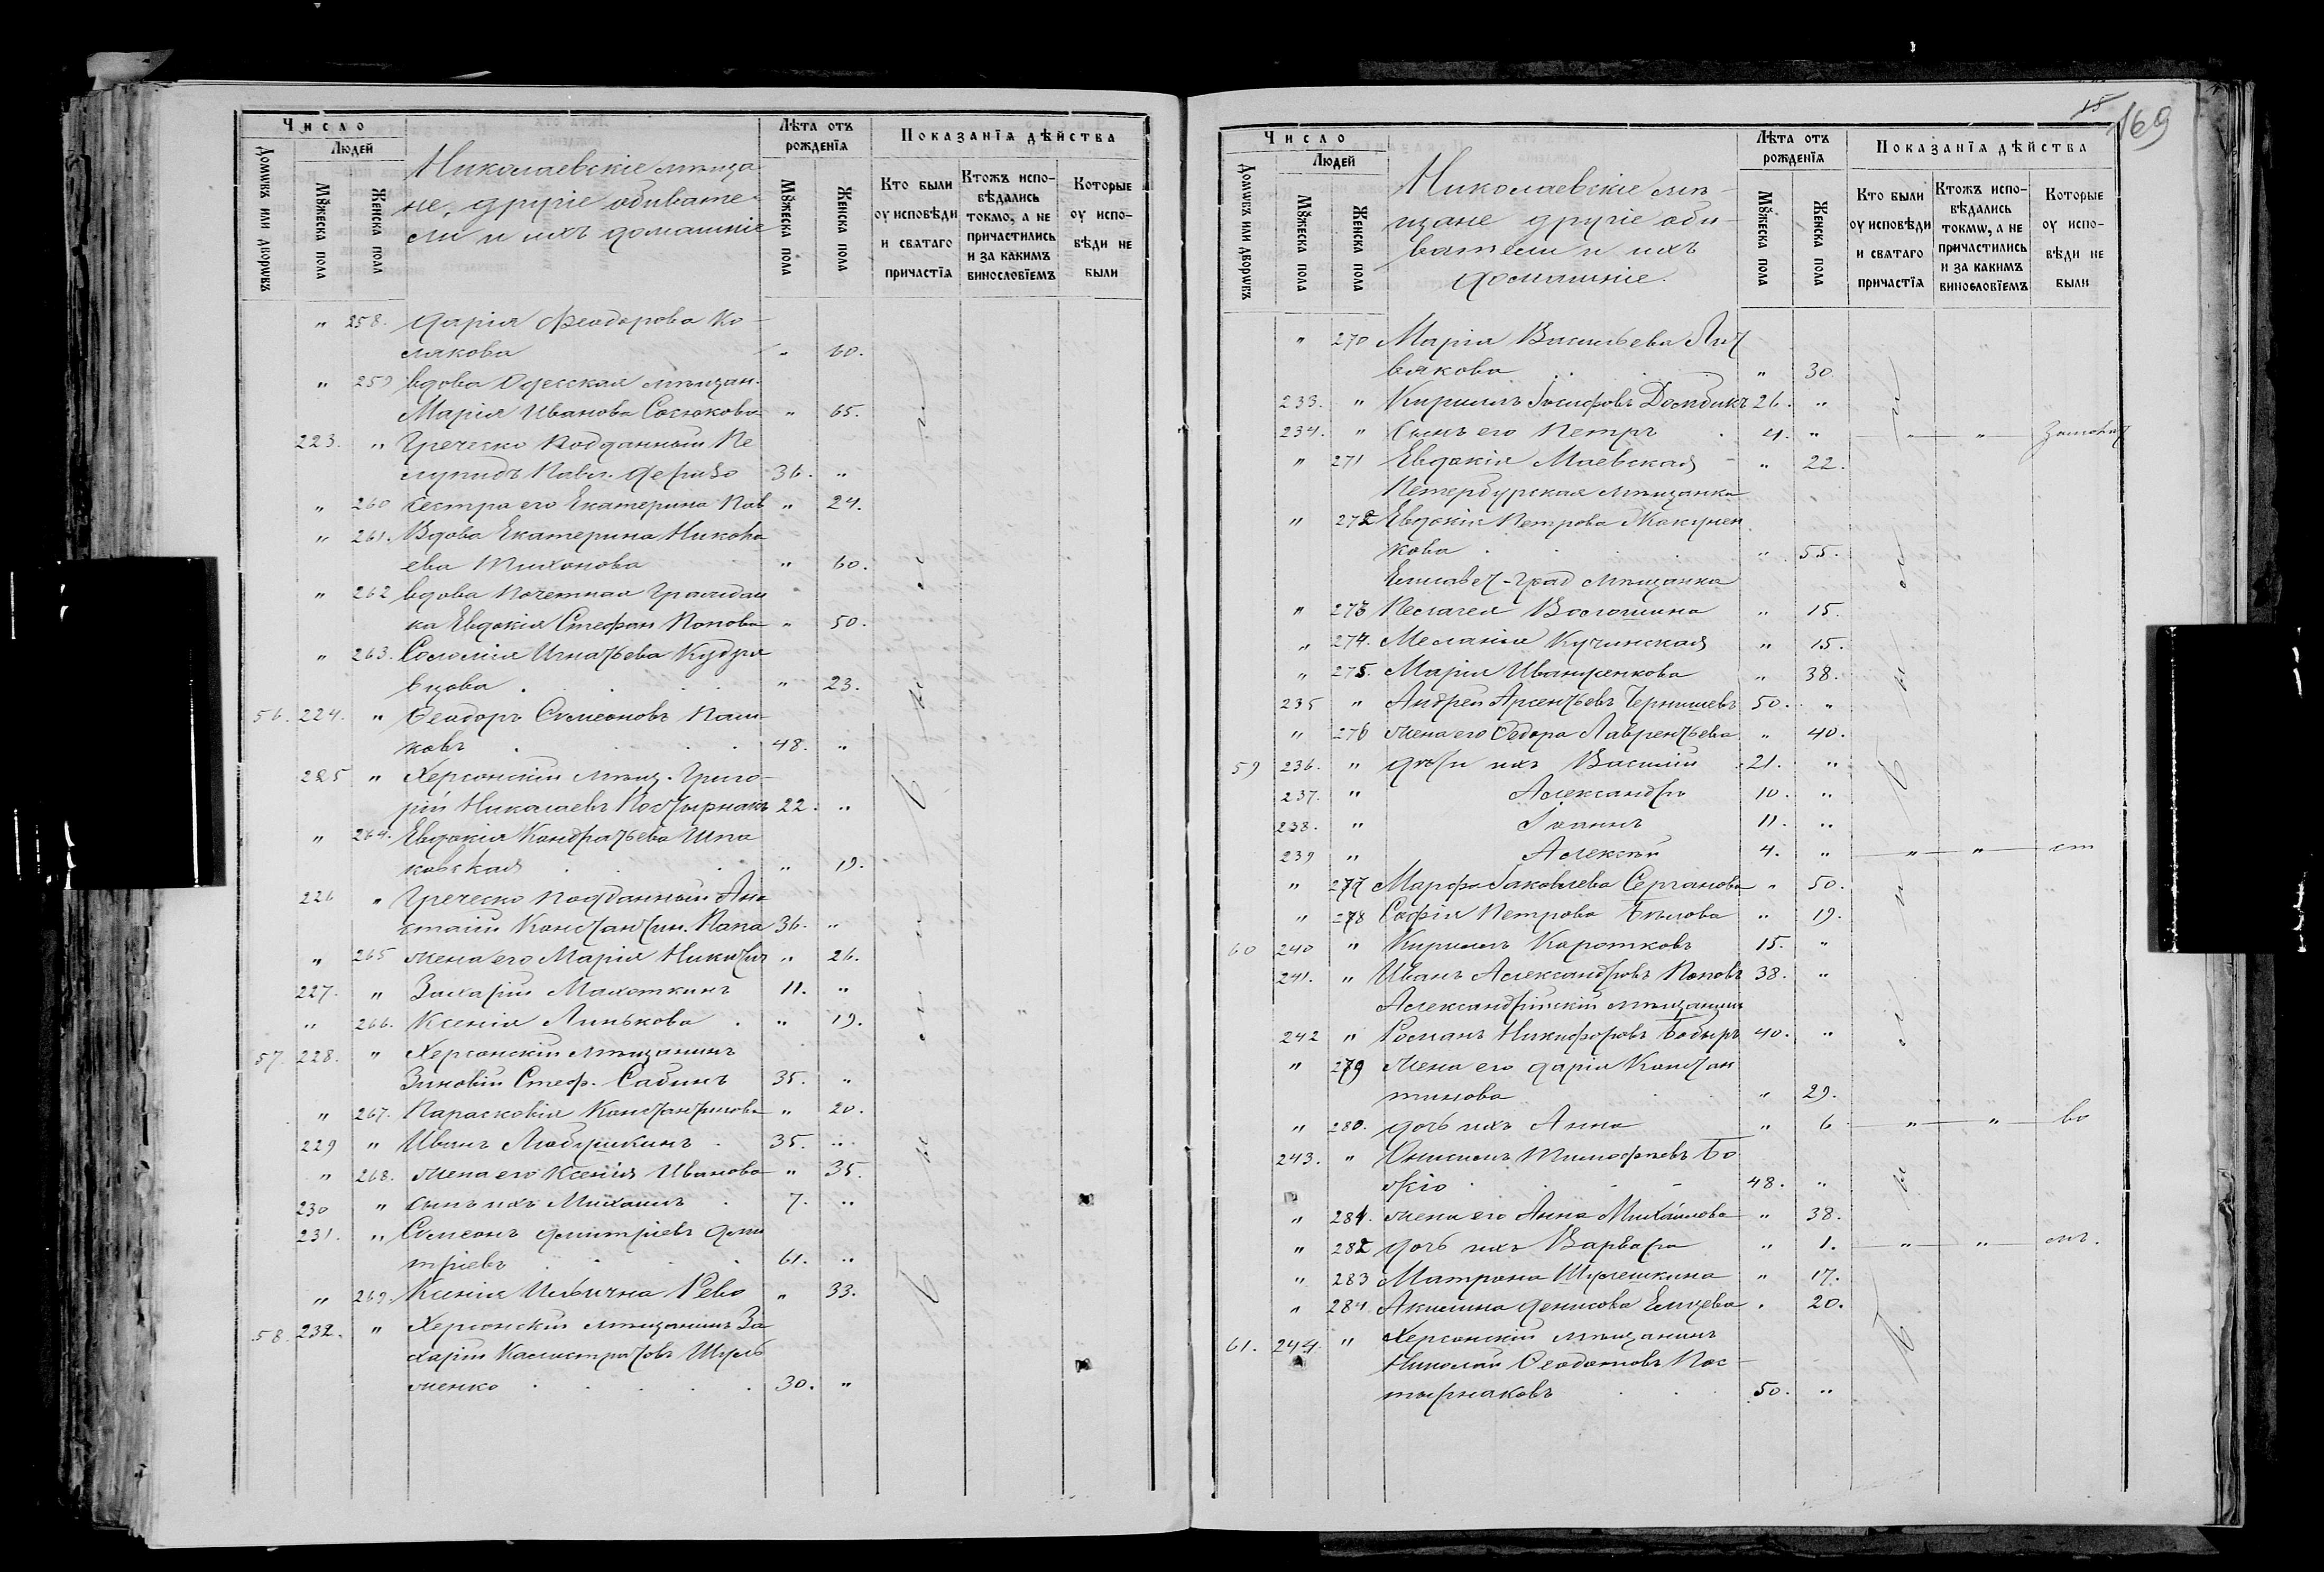 Число
Людей
Домѡвъ или дворѡвъ
Мꙋжеска пола
Женска пола
Николаевскіе мѣща
не, другіе обывате-
ли и ихъ домашніе
Лѣта отъ рожденїя
Мꙋжеска пола
Женска пола
Показанїя дѣйства
Кто были оу исповѣди и святаго причастїя
Ктожъ испо-вѣдались токмо, а не причастились и за какимъ винословїемъ
Которые оу испо-вѣди не были
" 258. Дарія Феодорова Ко-
лякова " 60.
" 259 вдова Одесская мѣщан.
Марія Иванова " 65.
223. " Греческо подданный Пе
Павл. 36. "
" 260 сестра его Екатерина Пав " 24.
" 261. Вдова Екатерина Никола
ева Тихонова " 60.
" 262 вдова почетная граждан
ка Евдокія Стефан Попова " 50.
" 263. Соломія Игнатьева Кудря
вцова " 23.
56. 224. " Феодоръ Симеоновъ Паш-
ковъ 48. "
225 " Херсонскій мѣщ. Григо-
рій Николаевъ Постырнакъ 22. "
" 264. Евдокія Кондратьева Шпа
ковская " 19.
226 " Греческо подданный Ана
стасій Константин. Папа 36. "
" 265 жена его Марія Никитич " 26.
227. " Захарій Махоткинъ 11. "
" 266. Ксенія Линькова " 19.
57. 228. " Херсонскій мѣщанинъ
Зиновій Стеф. Сабинъ 35. "
" 267. Параскевія Константинова " 20.
229 " Иванъ Любушкинъ 35. "
" 268. жена его Ксенія Иванова " 35.
230 " сынъ ихъ Михаилъ 7. "
231. " Симеонъ Димитріевъ Дими
тріевъ 61. "
" 269. Ксенія Ильична Рево " 33.
58. 232. " Херсонскій мѣщанинъ За
харій Калистратовъ Шуль
женко 30. "
15
169
Число
Людей
Домѡвъ или дворѡвъ
Мꙋжеска пола
Женска пола
Николаевскіе мѣ-
щане другіе обы-
ватели и ихъ
домашніе.
Лѣта отъ рожденїя
Мꙋжеска пола
Женска пола
Показанїя дѣйства
Кто были оу исповѣди и святаго причастїя
Ктожъ испо-вѣдались токмѡ, а не причастились и за какимъ винословїемъ
Которые оу испо-вѣди не были
" 270 Марія Васильева Лит
вякова " 30.
233. " Кириллъ Іосифовъ 26. "
234. " Сынъ его Петръ 4. " " "
" 271 Евдокія Маевская " 22.
Петербурская мѣщанка
" 272 Евдокія Петрова
кова " 55.
Елисавет-град мѣщанка
" 273 Пелагея Волошина " 15.
" 274. Меланія Кучинская " 15.
" 275. Марія Иващенкова " 38.
235 " Андрей Арсентьевъ Чернышевъ 50. "
" 276 жена его Федора Лаврентьева " 40.
59 236. " дѣти ихъ Василій 21. "
237. " Александръ 10. "
238. " Іоаннъ 11. "
239 " Алексѣй 4. " " " ст
" 277 Марфа Іаковлева Серганова " 50.
" 278 Софія Петрова Бѣлова " 19.
60 240 " Кириллъ Коротковъ 15. "
241. " Иванъ Александровъ Поповъ 38. "
Александрійскій мѣщанинъ
242 " Романъ Никифоровъ Бобырь 40. "
" 279 Жена его Дарія Констан
тинова " 29.
" 280. дочь ихъ Анна " 6 " " во
243. " Онисимъ Тимофѣевъ Бо
жко 48. "
" 281. жена его Анна Михайлова " 38.
" 282 дочь ихъ Варвара " 1. " "
" 283 Матрона Шулешкина " 17.
" 284. Акилина Денисова Елицева " 20.
61. 244. " Херсонскій мѣщанинъ
Николай Феодотовъ Пос-
тырнаковъ 50. "